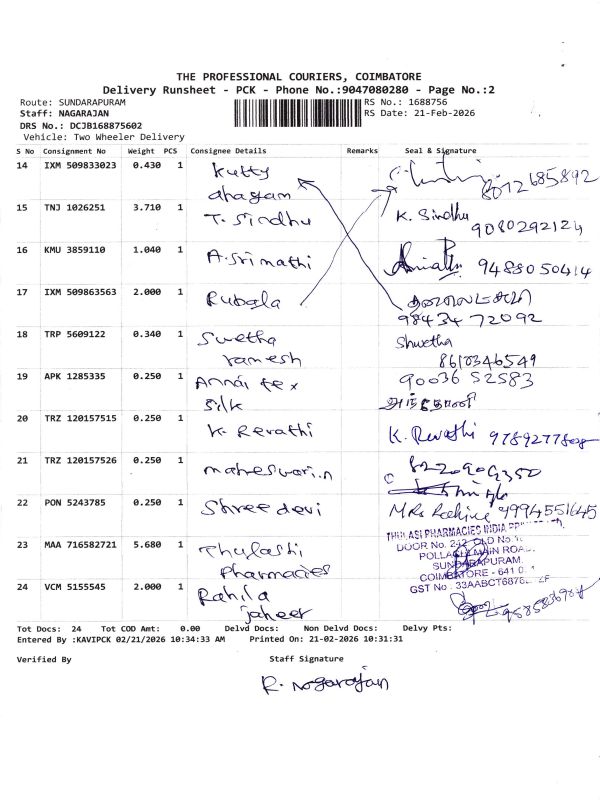 THE PROFESSIONAL COURIERS, COIMBATORE
Delivery Runsheet - PCK - Phone No.:9047080280 - Page No.:2
Route: SUNDARAPURAM RS No.: 1688756
Staff: NAGARAJAN RS Date: 21-Feb-2026
DRS No.: DCJB168875602
Vehicle: Two Wheeler Delivery
S No Consignment No Weight PCS Consignee Details Remarks Seal & Signature
14 IXM 509833023 0.430 1 Kutty
dhagam 8012685892
15 TNJ 1026251 3.710 1 T. Sindhu K. Sindhu
9080292124
16 KMU 3859110 1.040 1 A. Srimathi 9488050414
17 IXM 509863563 2.000 1 Rubala
98434 72092
18 TRP 5609122 0.340 1 Swetha Shwetha
ramesh 8610346549
19 APK 1285335 0.250 1 Annai tex 90036 52583
Silk
20 TRZ 120157515 0.250 1 K. Revathi K. Revathi
21 TRZ 120157526 0.250 1
22 PON 5243785 0.250 1 Shree devi Mrs 9994551645
23 MAA 716582721 5.680 1 Thulashi
Pharmacies
THULASI PHARMACIES INDIA
DOOR No. 242, OLD No.
POLLACHI MAIN ROAD,
SUNDARAPURAM,
COIMBATORE - 641 0
GST No : 33AABCT6876
24 VCM 5155545 2.000 1 Rahila
jaheer
Tot Docs: 24 Tot COD Amt: 0.00 Delvd Docs: Non Delvd Docs: Delvy Pts:
Entered By :KAVIPCK 02/21/2026 10:34:33 AM Printed On: 21-02-2026 10:31:31
Verified By Staff Signature
R. Nagarajan